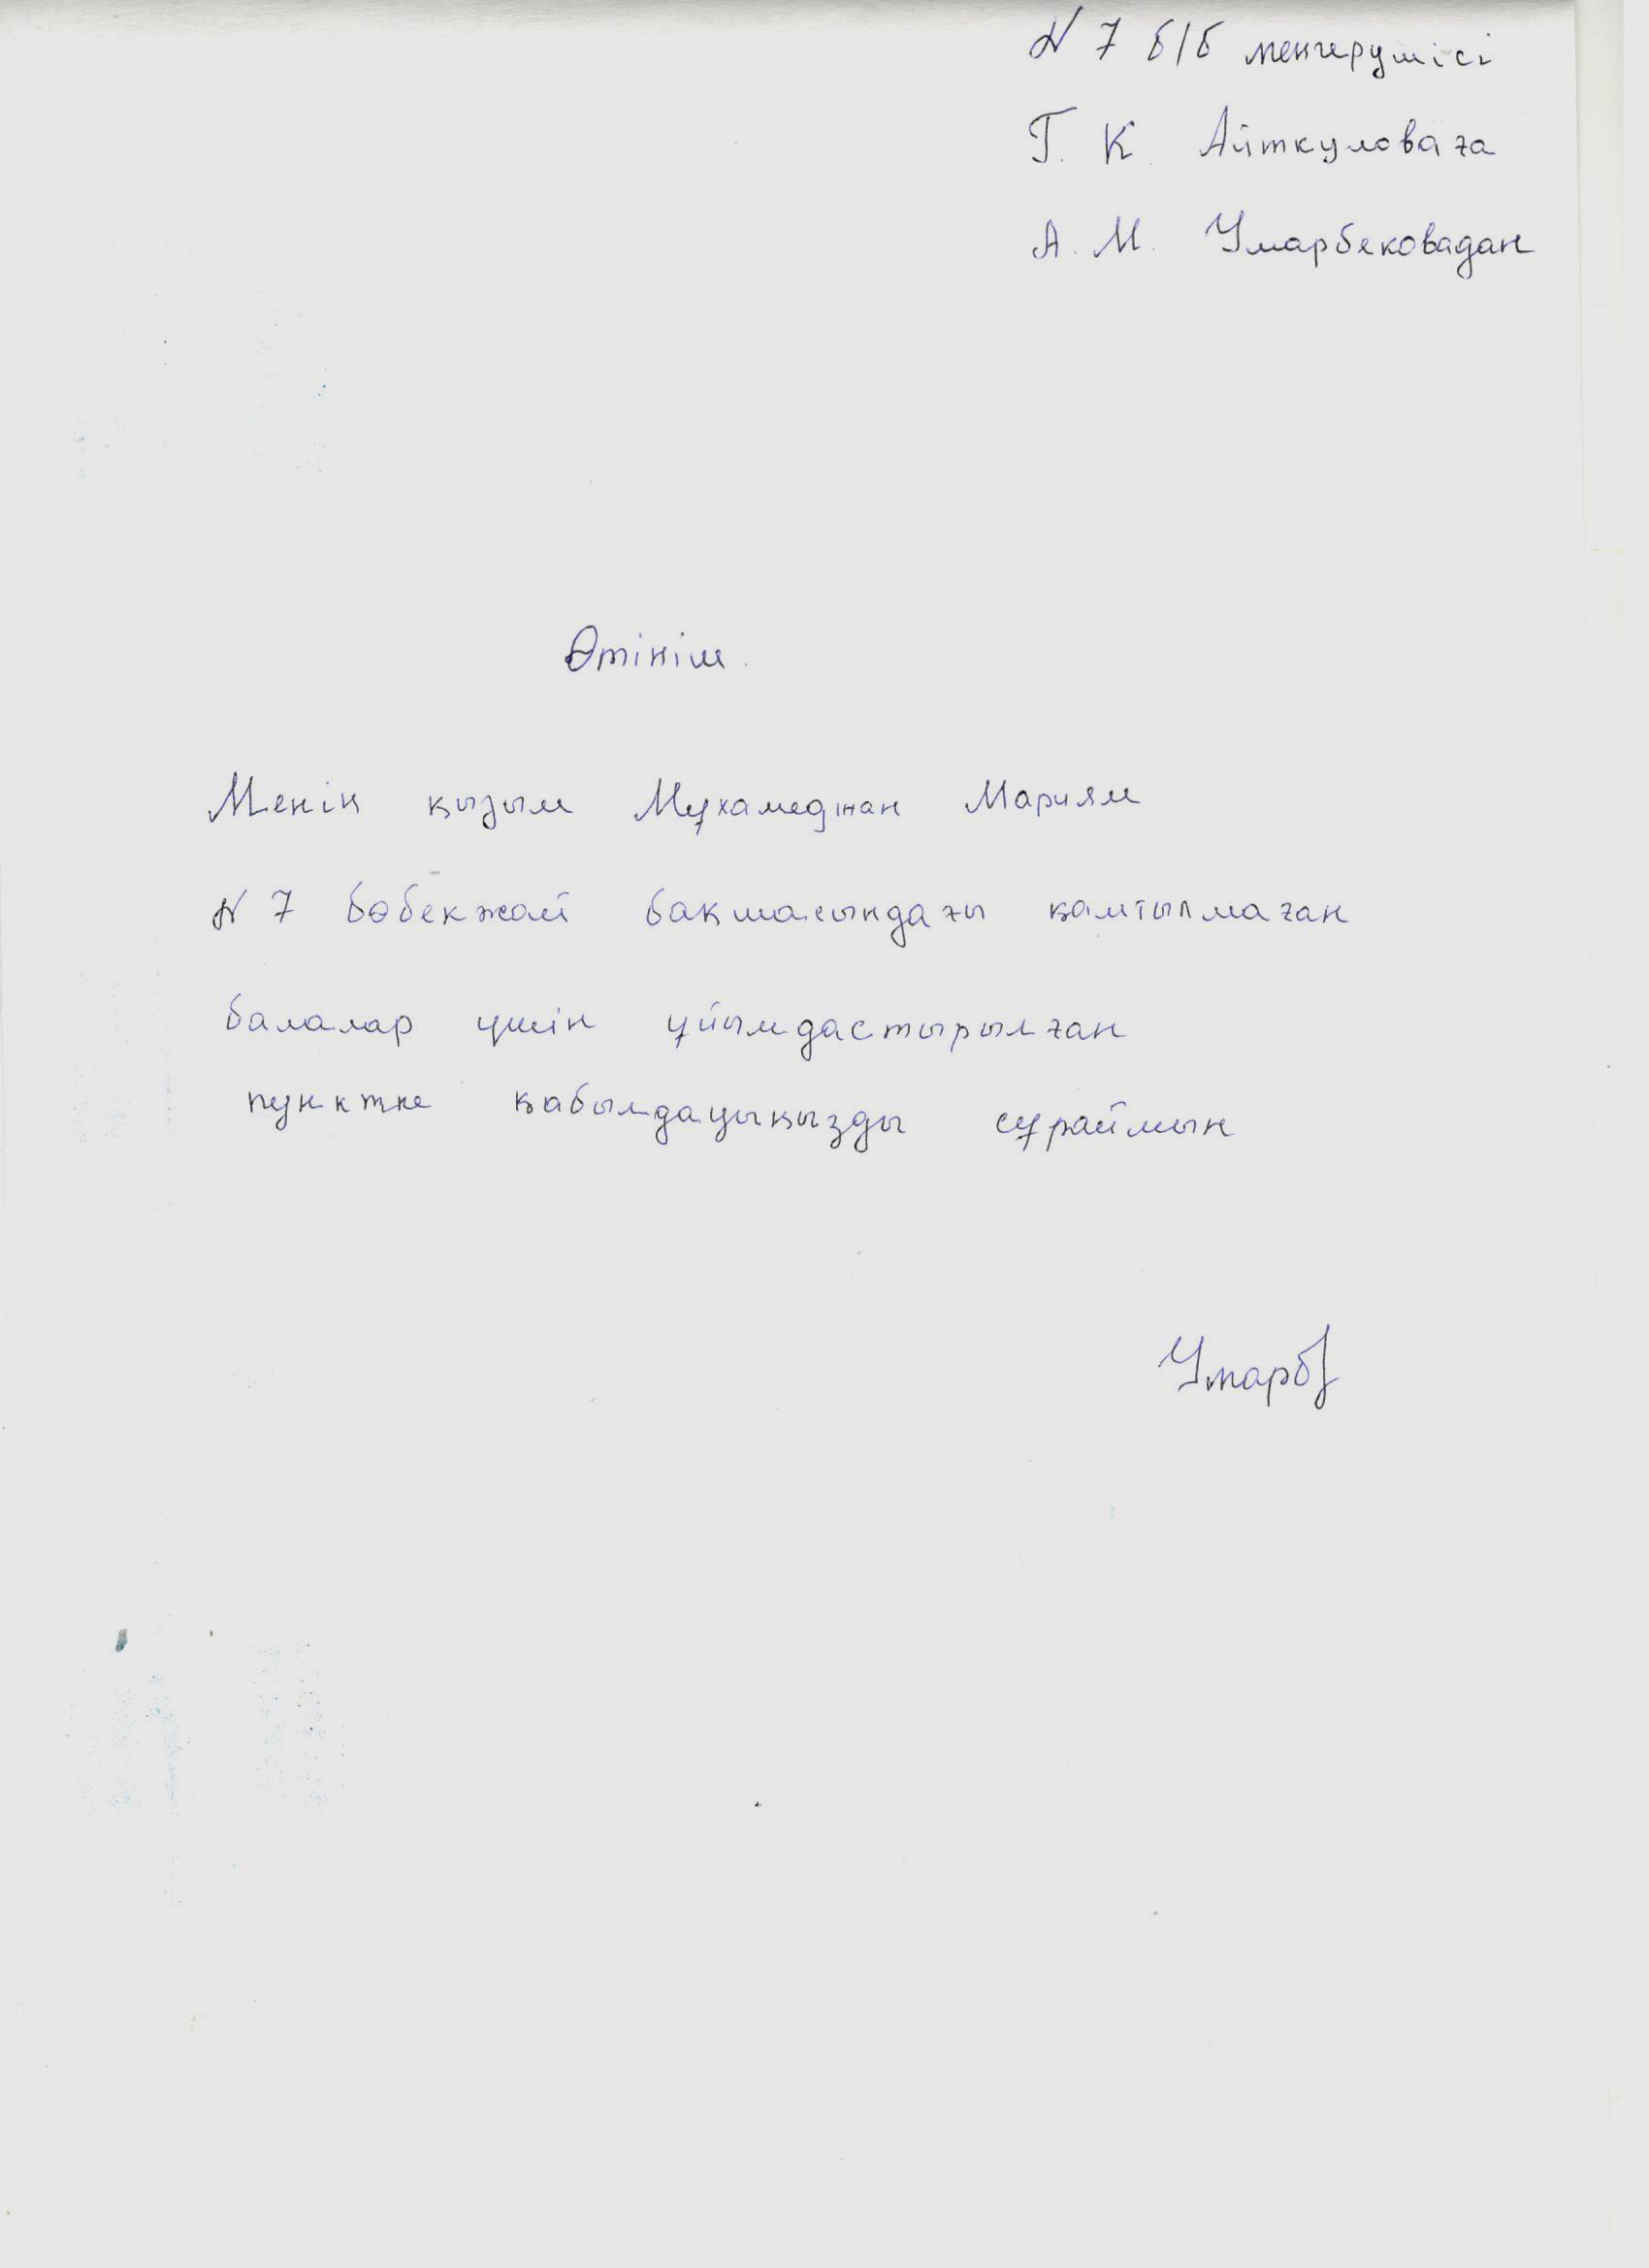 N 7 б/б меңгерушісі
Г. К. Айткуловаға
А. М. Умарбековадан
Өтініш.
Менің қызым Мұхамеджан Мариям
N 7 бөбекжай бақшасындағы қамтылмаған
балалар үшін ұйымдастырылған
пунктке қабылдауыңызды сұраймын
Умарб